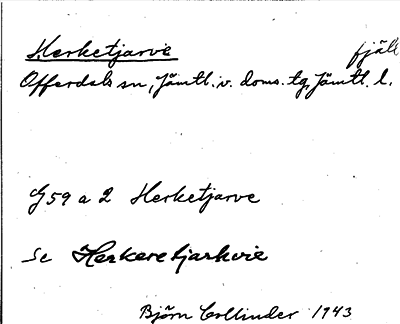 Herketjarve fjäll
Offerdals sn, Jämtl. v. doms. tg, Jämtl. l.
G 59 a 2 Herketjarve
Se Herkeretjarhvie
Björn Collinder 1943